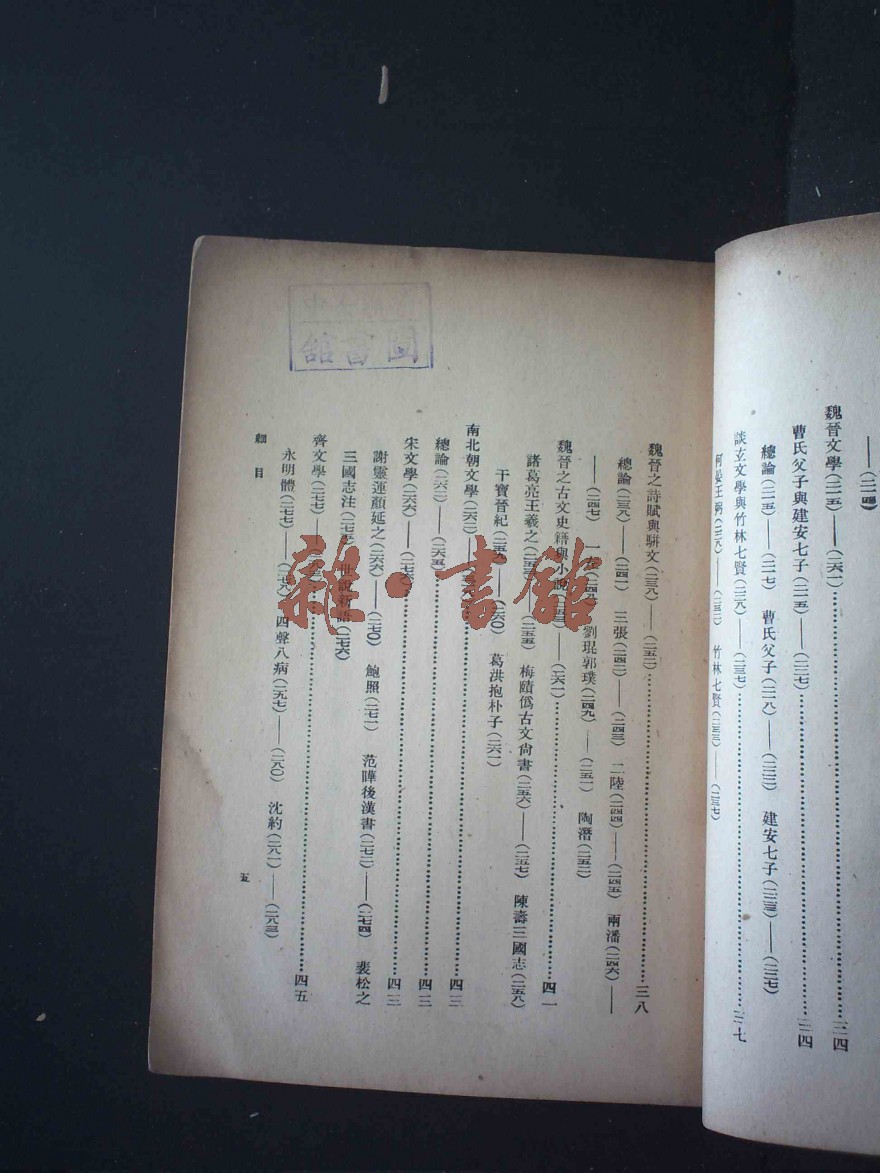 ——(二一四)
魏晉文學(二一五)——(二六一)……三四
曹氏父子與建安七子(二一五)——(二二七)……三四
總論(二一五)——(二一七) 曹氏父子(二一八)——(二二三) 建安七子(二二三)——(二二七)
談玄文學與竹林七賢(二二八)——(二三七)……三七
何晏王弼(二二八)——(二三二) 竹林七賢(二三三)——(二三七)
魏晉之詩賦與駢文(二三八)——(二五二)……三八
總論(二三八)——(二四一) 三張(二四二)——(二四三) 二陸(二四四)——(二四五) 兩潘(二四六)——
——(二四七) 一左(二四八) 劉琨郭璞(二四九)——(二五一) 陶潛(二五二)
魏晉之古文史籍與小說(二五三)——(二六一)……四一
諸葛亮王羲之(二五三)——(二五五) 梅賾僞古文尙書(二五六)——(二五七) 陳壽三國志(二五八)
干寶晉紀(二五九)——(二六〇) 葛洪抱朴子(二六一)
南北朝文學(二六二)……四三
總論(二六二)——(二六五)……四三
宋文學(二六六)——(二七六)……四三
謝靈運顏延之(二六六)——(二七〇) 鮑照(二七一) 范曄後漢書(二七二)——(二七四) 裴松之
三國志注(二七五) 世說新語(二七六)
齊文學(二七七)……四五
永明體(二七七)——(二七八) 四聲八病(二九七)——(二八〇) 沈約(二八一)——(二八三)
細目
五
圖書館
雜·書館